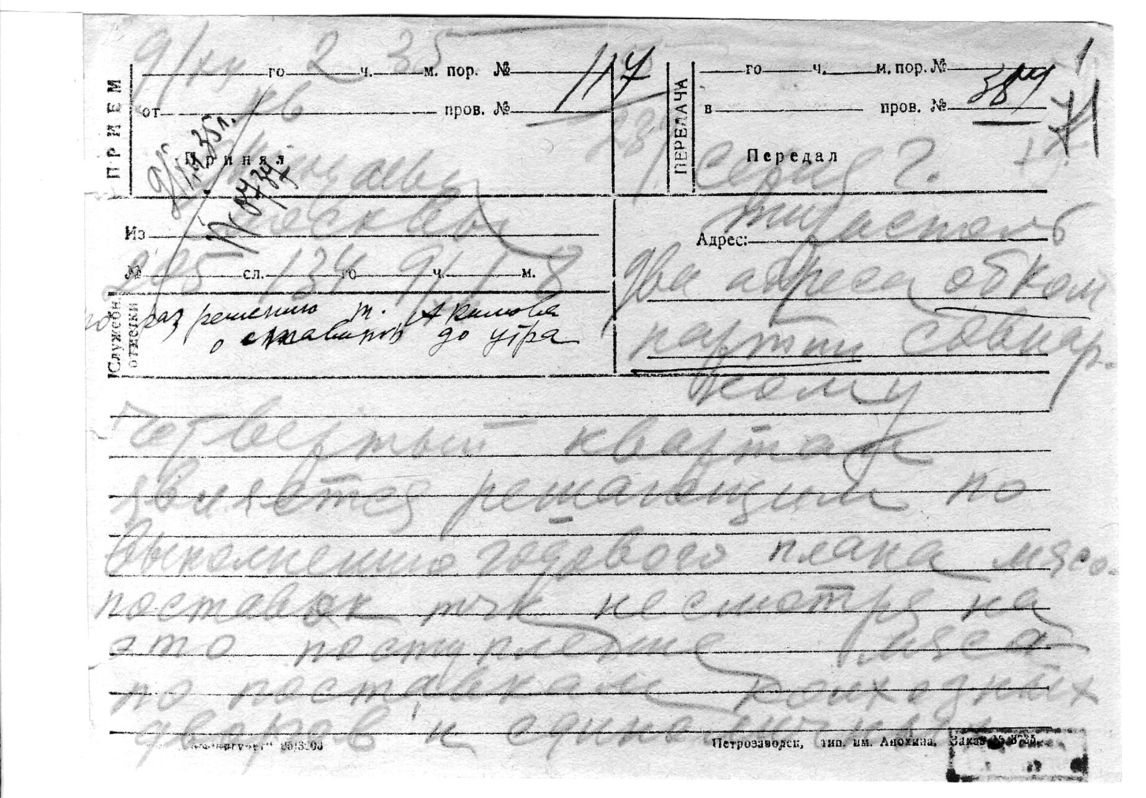 ПРИЕМ
9/XI го 2 ч. 35 м. пор. №
от пров. № 117
Принял
Москвы
Из
№ 295 сл. 134 го 9/ ч. 1 м. 8
Служебн. отметки
по разрешению т. Акимова
оставить до утра
ПЕРЕДАЧА
го ч. м. пор. №
в пров. №
Передал
Серия Г.
Адрес: Тирасполь
два адреса обком
партии совнар-
кому
Четвертый квартал
является решающим по
выполнению годового плана мясо-
поставок тчк несмотря на
это поступление мяса
по поставкам колхозных
дворов и единоличных
Петрозаводск, тип. им. Анохина. Заказ